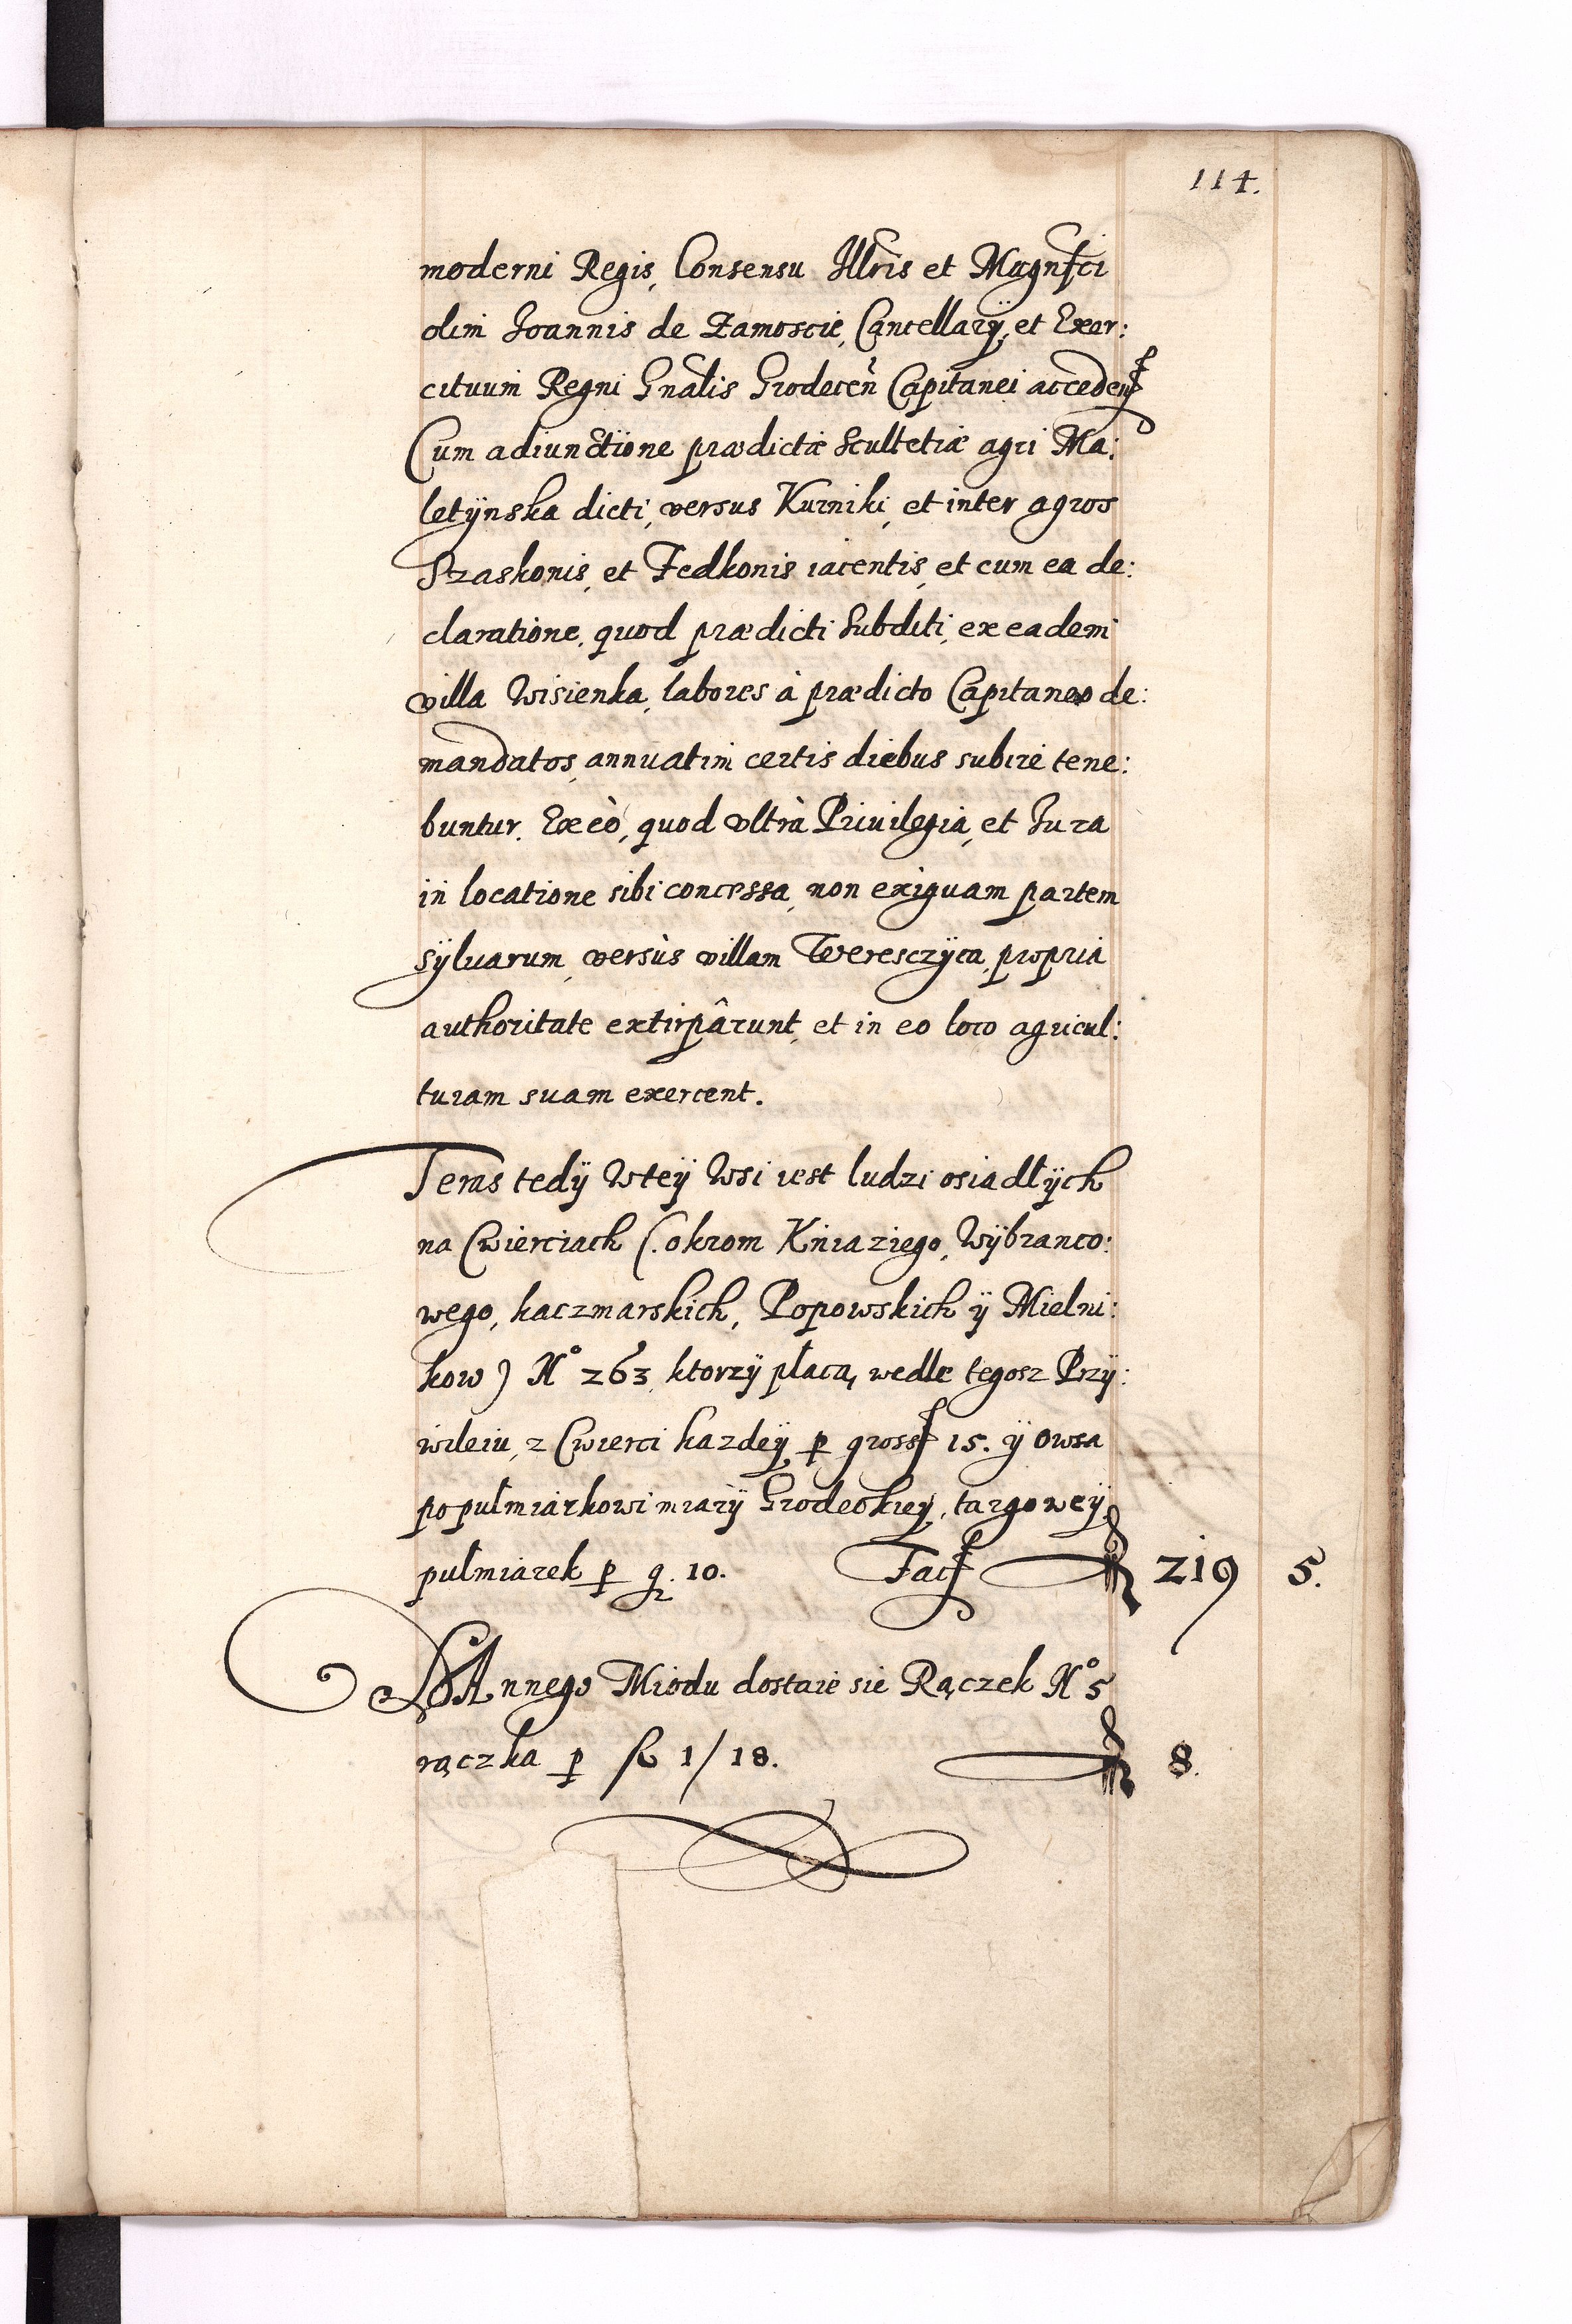 114.
moderni Regis, Consensu Illris et Magnfci
olim Joannis de Zamoscie, Cancellarÿ, et Exer:
cituum Regni Gnalis Grodecen̄ Capitanei acceden
Cum adiunctione prædictæ Scultetiæ agri Ma:
letÿnska dicti, versus Kurniki, et inter agros
Szaskonis, et Fedkonis iacentis, et cum ea de:
claratione, quod prædicti Subditi, ex eadem
villa Wisienka, labores à prædicto Capitaneo de:
mandatos, annuatim certis diebus subire tene:
buntur. Ex eò, quod vltrà Priuilegia, et Jura
in locatione sibi concessa, non exiguam partem
sÿluarum, versùs villam Weresczÿca, propria
authoritate extirpârunt, et in eo loco agricul:
turam suam exercent.
Teras tedÿ Wteÿ Wsi iest ludzi osiadłÿch
na Cwierciach (. okrom Kniaziego, Wÿbranco:
wego, kaczmarskich, Popowskich ÿ Mielni:
kow) No 263, ktorzÿ płacą, wedle tegosz Przÿ:
wileiu, z Cwierci kazdeÿ p gross 15. ÿ Owsa
po pułmiarkowi miarÿ Grodeckieÿ, targoweÿ,
pułmiarek p g. 10. Faci 219 5.
DAnnego Miodu dostaie sie Rączek No 5
rączka p fl 1/18. 8.